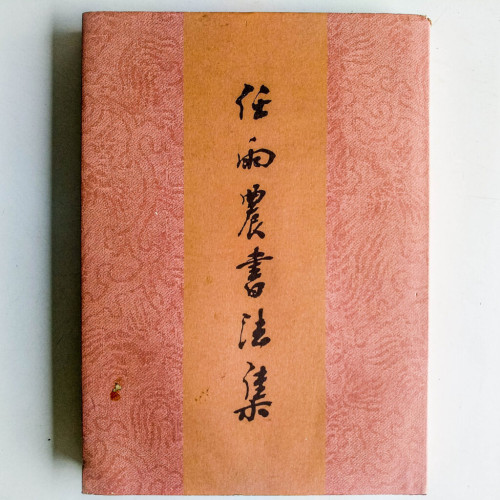 任雨農書法集